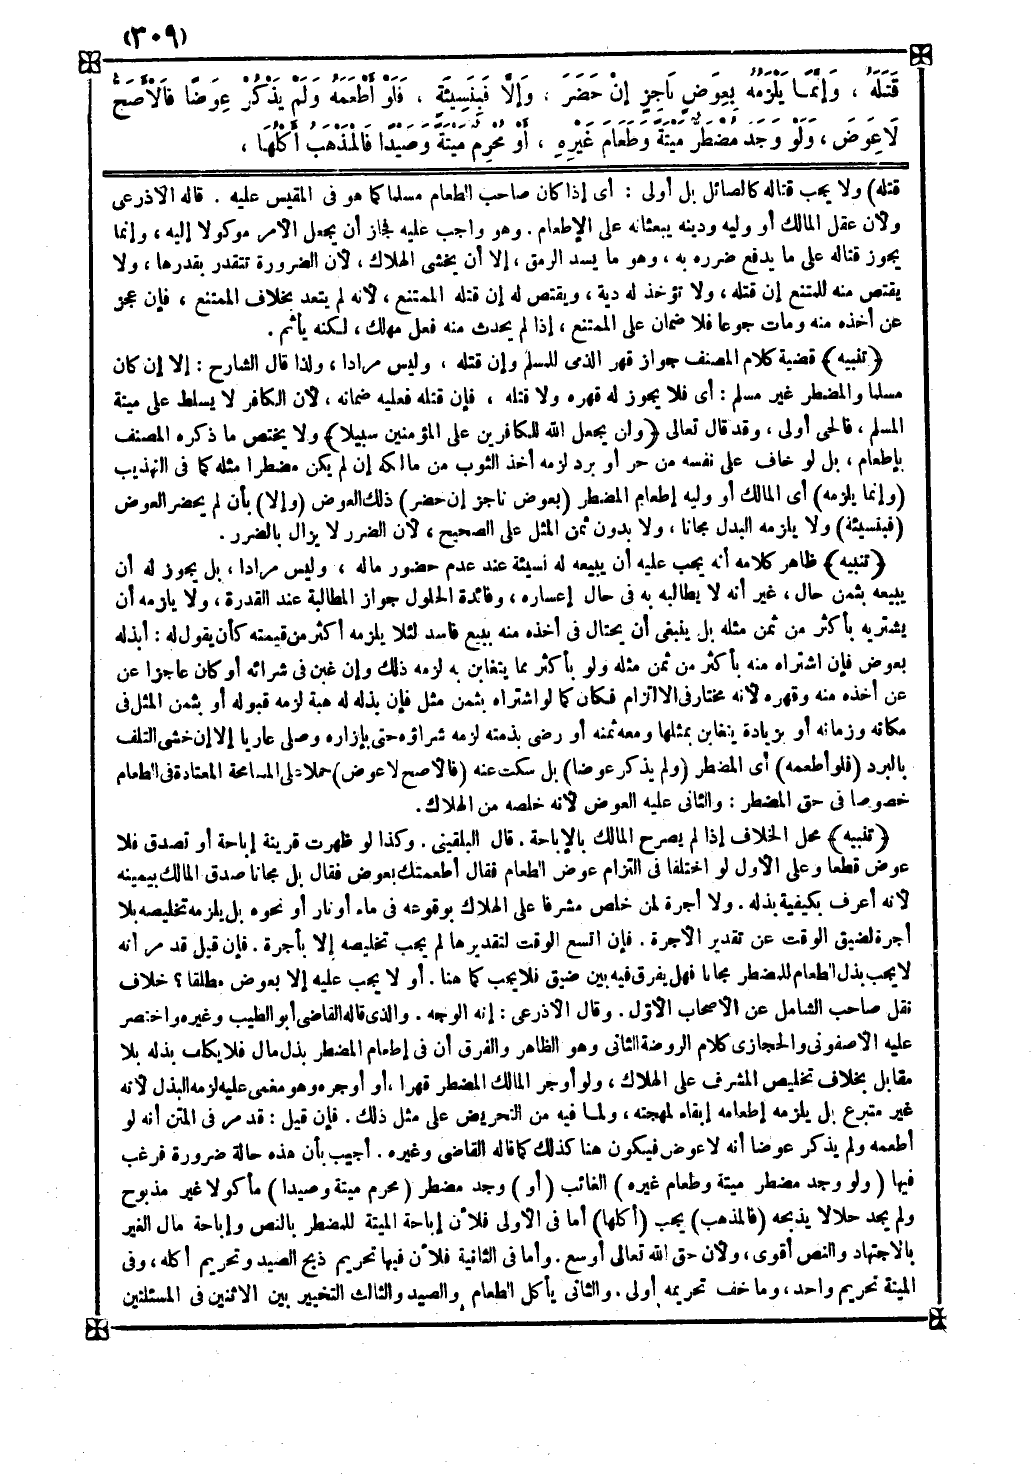 (٣٠٩)
قَتَلَهُ ، وَإِنَّمَا يَلْزَمُهُ بِعِوَضٍ نَاجِزٍ إِنْ حَضَرَ ، وَإِلَّا فَبِنَسِيئَةٍ ، فَلَوْ أَطْعَمَهُ وَلَمْ يَذْكُرْ عِوَضًا فَالْأَصَحُّ
لَا عِوَضَ ، وَلَوْ وَجَدَ مُضْطَرٌّ مَيْتَةً وَطَعَامَ غَيْرِهِ ، أَوْ مُحْرِمٌ مَيْتَةً وَصَيْدًا فَالْمَذْهَبُ أَكْلُهَا ،
قتله) ولا يجب قتاله كالصائل بل أولى : أى إذا كان صاحب الطعام مسلما كما هو فى المقيس عليه . قاله الاذرعى
ولأن عقل المالك أو وليه ودينه يبعثانه على الإطعام . وهو واجب عليه فجاز أن يجعل الأمر موكولا إليه ، وإنما
يجوز قتاله على ما يدفع ضرره به ، وهو ما يسد الرمق ، إلا أن يخشى الهلاك ، لأن الضرورة تتقدر بقدرها ، ولا
يقتص منه للمتنع إن قتله ، ولا تؤخذ له دية ، ويقتص له إن قتله الممتنع ، لأنه لم يتعد بخلاف الممتنع ، فإن عجز
عن أخذه منه ومات جوعا فلا ضمان على الممتنع ، إذا لم يحدث منه فعل مهلك ، لكنه يأثم .
﴿تنبيه﴾ قضية كلام المصنف جواز قهر الذمى للمسلم وإن قتله ، وليس مرادا ، ولذا قال الشارح : إلا إن كان
مسلما والمضطر غير مسلم : أى فلا يجوز له قهره ولا قتله ، فإن قتله فعليه ضمانه ، لأن الكافر لا يسلط على ميتة
المسلم ، فالحى أولى ، وقد قال تعالى ﴿ولن يجعل الله للكافرين على المؤمنين سبيلا﴾ ولا يختص ما ذكره المصنف
بإطعام ، بل لو خاف على نفسه من حر أو برد لزمه أخذ الثوب من مالكه إن لم يكن مضطرا مثله كما فى التهذيب
(وإنما يلزمه) أى المالك أو وليه إطعام المضطر (بعوض ناجز إن حضر) ذلك العوض (وإلا) بأن لم يحضر العوض
(فبنسيئة) ولا يلزمه البدل مجانا ، ولا بدون ثمن المثل على الصحيح ، لأن الضرر لا يزال بالضرر .
﴿تنبيه﴾ ظاهر كلامه أنه يجب عليه أن يبيعه له نسيئة عند عدم حضور ماله ، وليس مرادا ، بل يجوز له أن
يبيعه بثمن حال ، غير أنه لا يطالبه به فى حال إعساره ، وفائدة الحلول جواز المطالبة عند القدرة ، ولا يلزمه أن
يشتريه بأكثر من ثمن مثله بل ينبغى أن يحتال فى أخذه منه ببيع فاسد لئلا يلزمه أكثر من قيمته كأن يقول له : أبذله
بعوض فإن اشتراه منه بأكثر من ثمن مثله ولو بأكثر مما يتغابن به لزمه ذلك وإن غبن فى شرائه أو كان عاجزا عن
عن أخذه منه وقهره لأنه مختار فى الالتزام فكان كما لو اشتراه بثمن مثل فإن بذله له هبة لزمه قبوله أو بثمن المثل فى
مكانه وزمانه أو بزيادة يتغابن بمثلها ومعه ثمنه أو رضى بذمته لزمه شراؤه حتى بإزاره وصلى عاريا إلا إن خشى التلف
بالبرد (فلو أطعمه) أى المضطر (ولم يذكر عوضا) بل سكت عنه (فالأصح لا عوض) حملا على المسامحة المعتادة فى الطعام
خصوصا فى حق المضطر : والثانى عليه العوض لأنه خلصه من الهلاك .
﴿تنبيه﴾ محل الخلاف إذا لم يصرح المالك بالإباحة . قال البلقينى . وكذا لو ظهرت قرينة إباحة أو تصدق فلا
عوض قطعا وعلى الأول لو اختلفا فى التزام عوض الطعام فقال أطعمتك بعوض فقال بل مجانا صدق المالك بيمينه
لأنه أعرف بكيفية بذله . ولا أجرة لمن خلص مشرفا على الهلاك بوقوعه فى ماء أو نار أو نحوه بل يلزمه تخليصه بلا
أجرة لضيق الوقت عن تقدير الأجرة . فإن اتسع الوقت لتقديرها لم يجب تخليصه إلا بأجرة . فإن قيل قد مر أنه
لا يجب بذل الطعام للمضطر مجانا فهل يفرق فيه بين ضيق فلا يجب كما هنا . أو لا يجب عليه إلا بعوض مطلقا ؟ خلاف
نقل صاحب الشامل عن الأصحاب الأول . وقال الأذرعى : إنه الوجه . والذى قاله القاضى أبو الطيب وغيره واختصر
عليه الأصفونى والحجازى كلام الروضة الثانى وهو الظاهر والفرق أن فى إطعام المضطر بذل مال فلا يكلف بذله بلا
مقابل بخلاف تخليص المشرف على الهلاك ، ولو أوجر المالك المضطر قهرا ، أو أوجره وهو مغمى عليه لزمه البدل لأنه
غير متبرع بل يلزمه إطعامه إبقاء لمهجته ، ولما فيه من التحريض على مثل ذلك . فإن قيل : قد مر فى المتن أنه لو
أطعمه ولم يذكر عوضا أنه لا عوض فيكون هنا كذلك كما قاله القاضى وغيره . أجيب بأن هذه حالة ضرورة فرغب
فيها ( ولو وجد مضطر ميتة وطعام غيره ) الغائب ( أو ) وجد مضطر ( محرم ميتة وصيدا ) مأكولا غير مذبوح
ولم يجد حلالا يذبحه (فالمذهب) يجب (أكلها) أما فى الأولى فلأن إباحة الميتة للمضطر بالنص وإباحة مال الغير
بالاجتهاد والنص أقوى ، ولأن حق الله تعالى أوسع . وأما فى الثانية فلأن فيها تحريم ذبح الصيد وتحريم أكله ، وفى
الميتة تحريم واحد ، وما خف تحريمه أولى . والثانى يأكل الطعام والصيد والثالث التخيير بين الاثنين فى المسئلتين